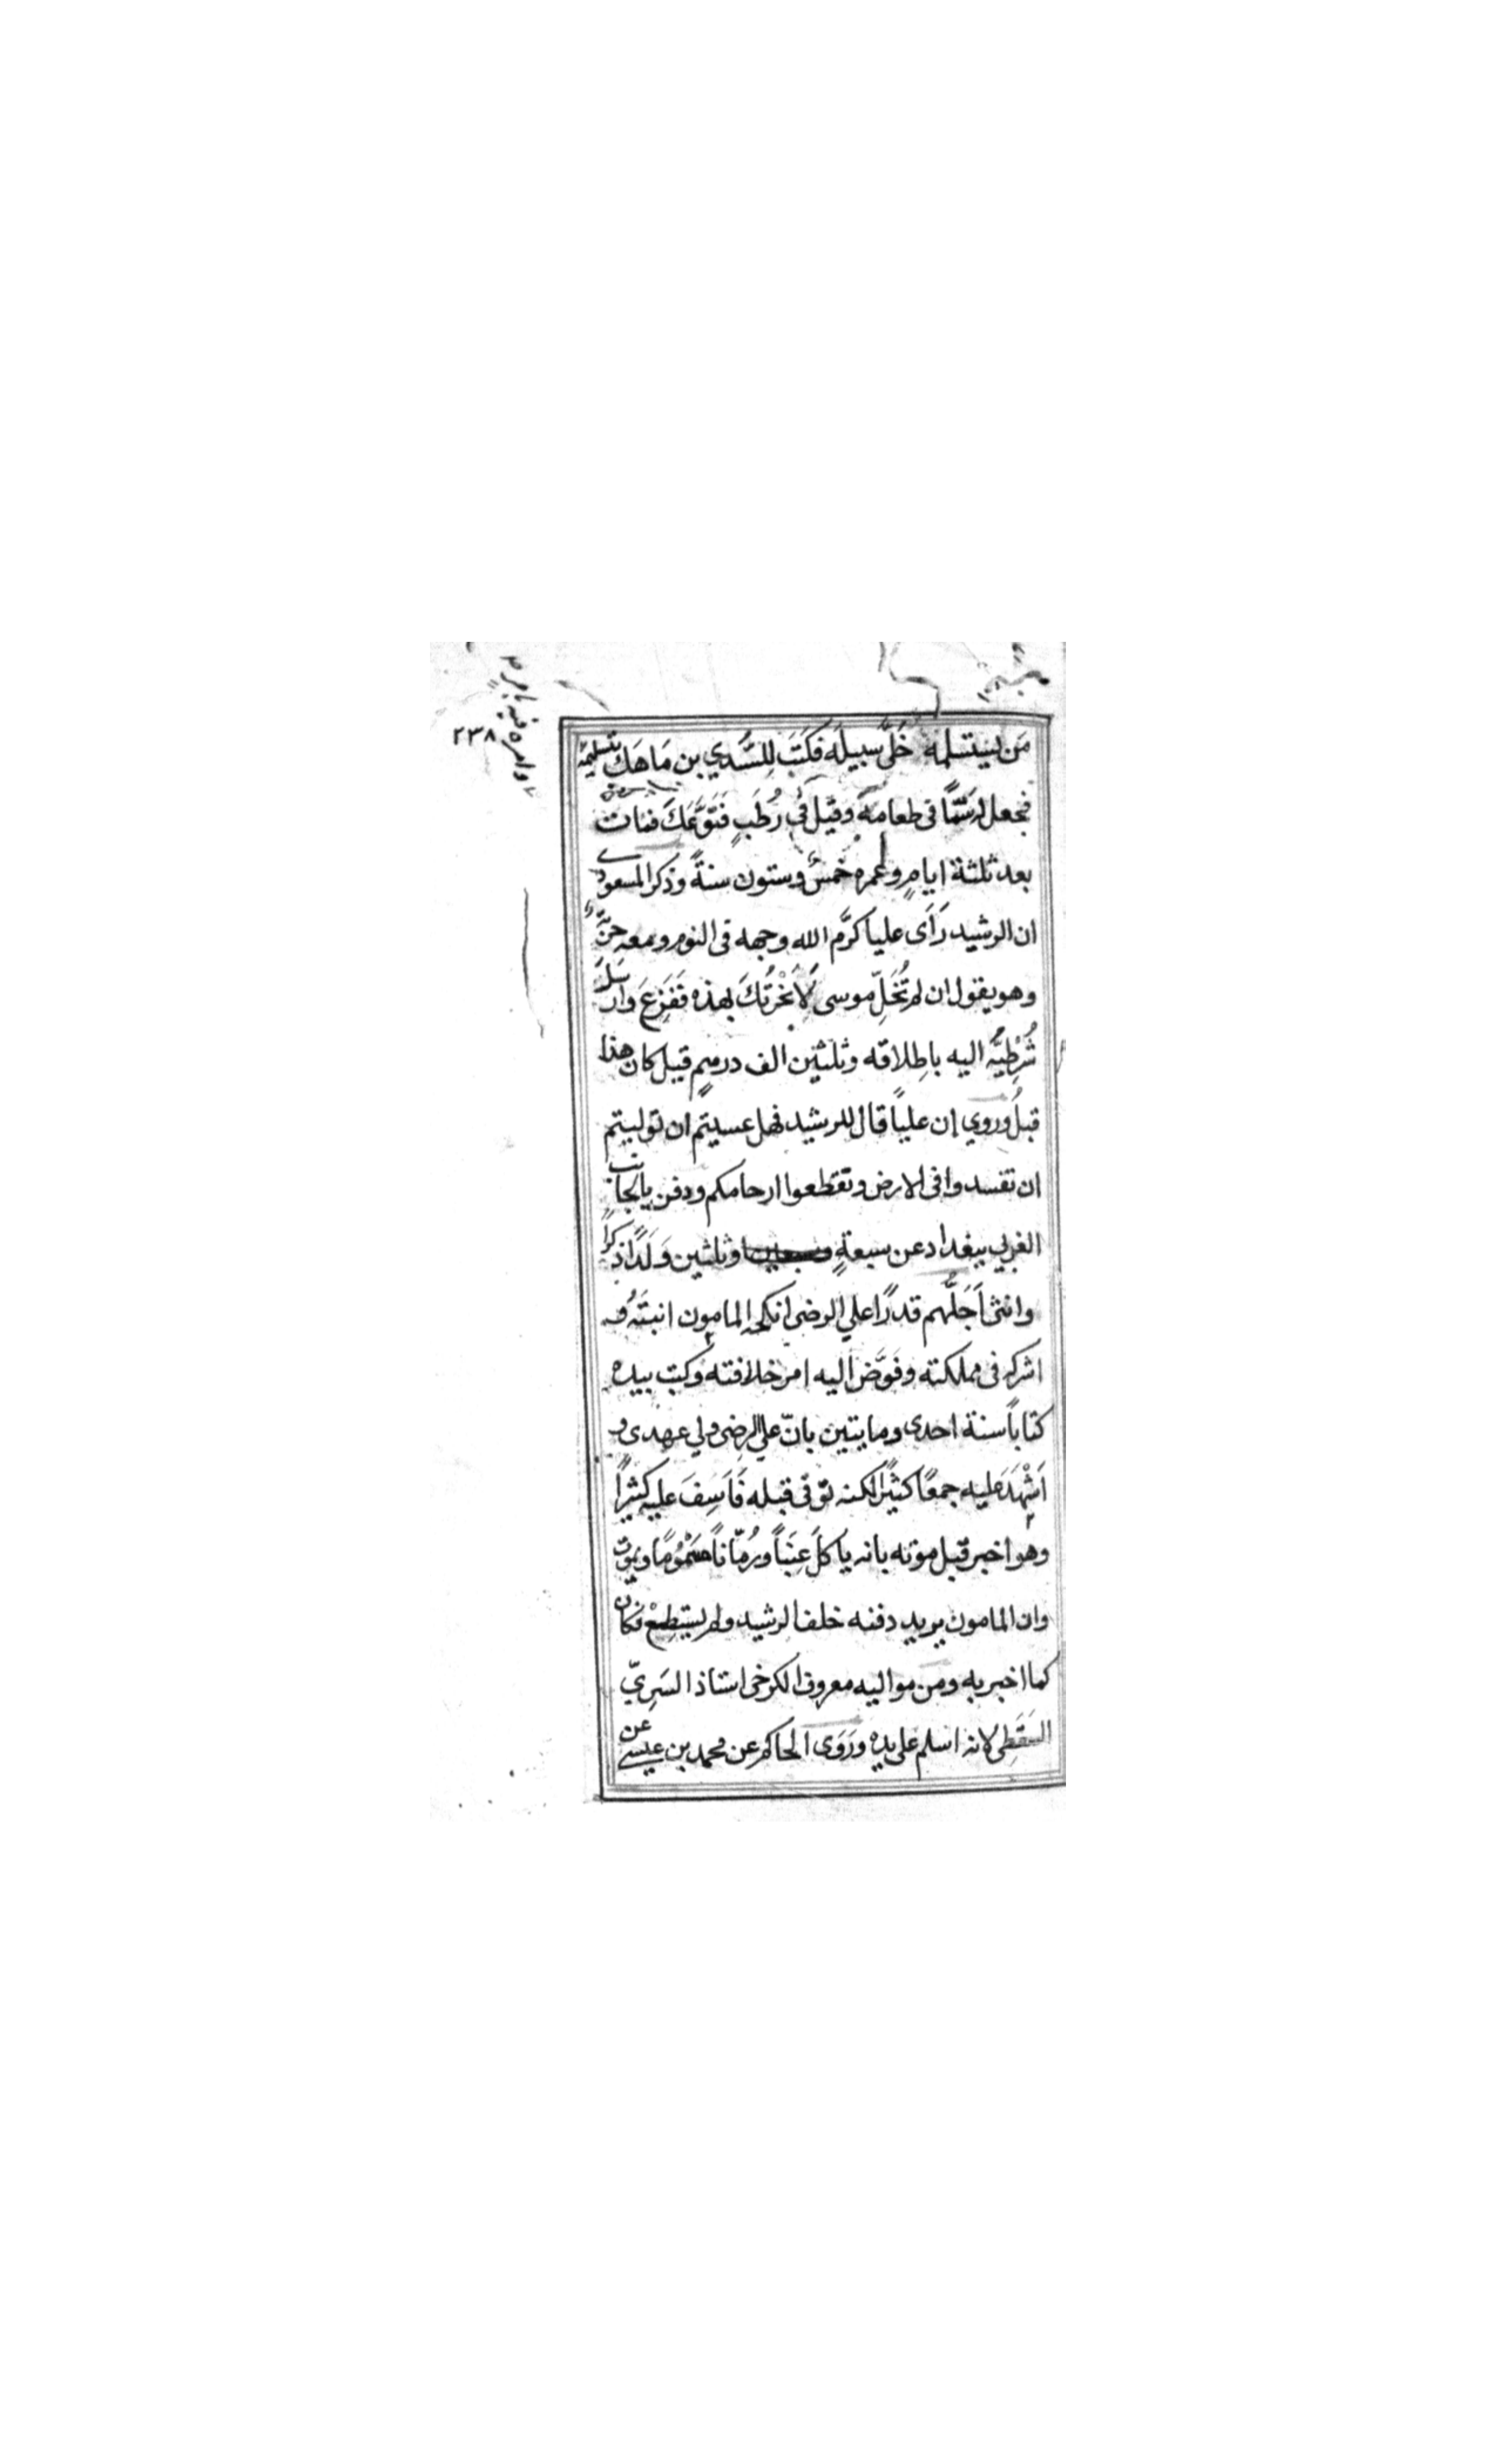 ٢٣٨
وامره فيه بامر
مَن يستسلمه خَلَّى سبيلَه فكَتَبَ لِلسَّدي بن مَاهَك بتسليمه
فجعل له سَمًّا فى طعامه وقيل فى رُطَبٍ فتَوَعَّكَ فمات
بعد ثلثة ايامٍ وعمره خمسٌ وستون سنةً وذكر المسعودى
ان الرشيد رَأى عليا كرَّم الله وجهه فى النوم ومعه حَرْبَةٌ
وهو يقول ان لم تُخَلِّ موسى لاَنحَرتُكَ بهذه فَفَزِعَ وارسَلَ
شُرْطِيَّه اليه باِطلاقه وثلثين الف درهمٍ قيل كان هذا
قبلُ وروي إن علياً قال للرشيد فهل عسيتم ان توليتم
ان تفسدوا فى الارض وتقطعوا ارحامكم ودفن بالجانب
الغربي ببغداد عن سبعةٍ وثلثين وَلَدًا ذكرًا
وانثى اَجَلُّهم قدرًا علي الرضى انكحه المامون ابنتَهُ و
اشركه فى مملكته وفَوَّض اليه امر خلافته وكتب بيده
كتاباً سنة احدى ومايتين بانّ علي الرضى ولي عهدى و
اَشْهَدَ عليه جمعًا كثيرًا لكنه تُوفى قبله فَاَسِفَ عليه كثيرًا
وهو اخبر قبل موته بانه ياكلَ عِنَباً ورُمّاناً مَسْمُومًا ويموت
وان المامون يريد دفنه خلف الرشيد ولم يستطِعْ فكان
كما اخبر به ومن مواليه معروف الكرخى استاذ السَرِيّ
السَقَطِى لانه اسلم على يده ورَوَى الحاكم عن محمد بن عيسى عن